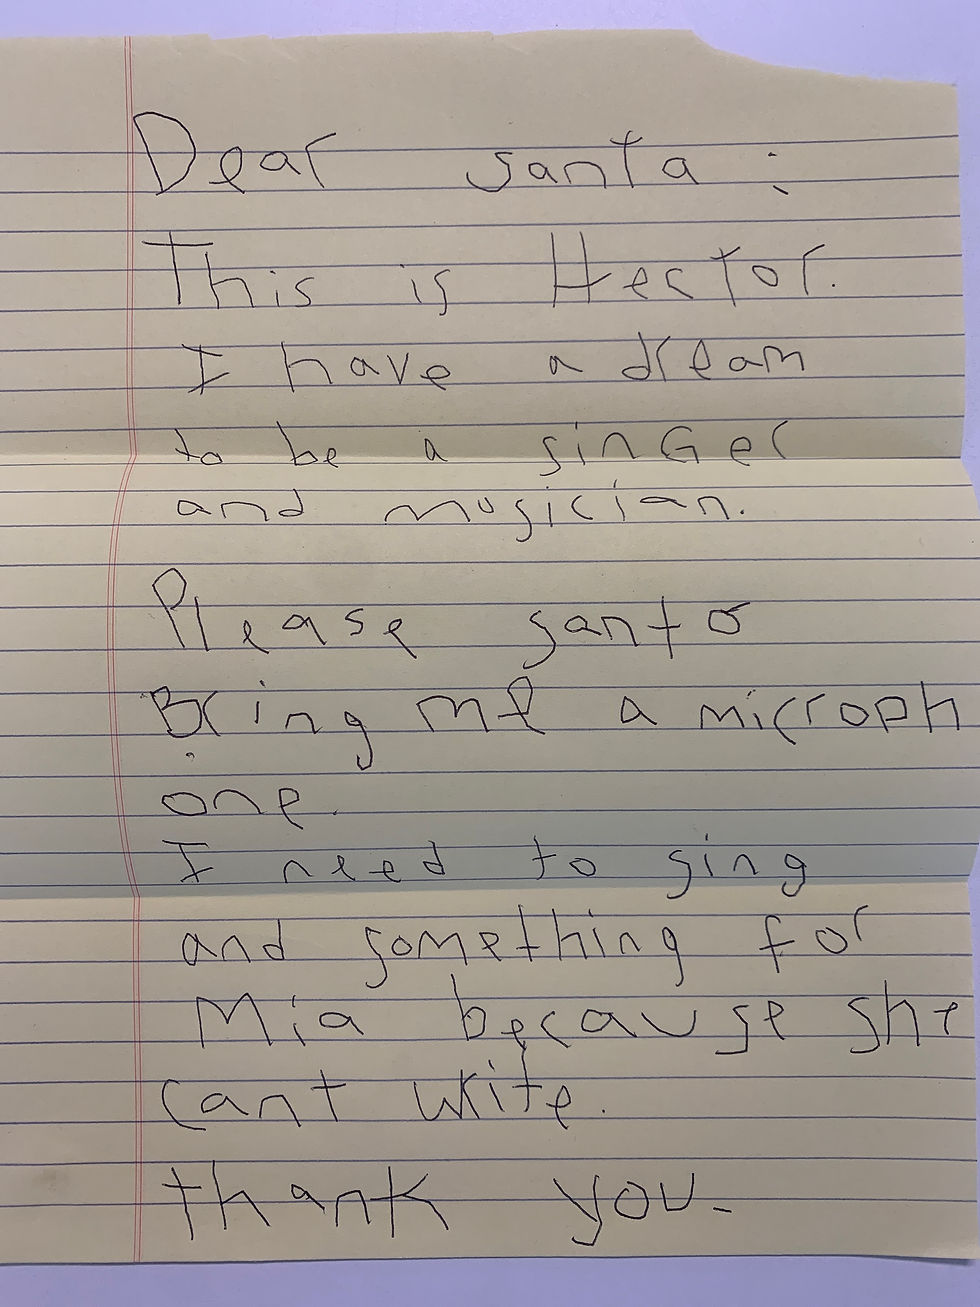 Dear santa :
This is Hector.
I have a dream
to be a sinGer
and musician.
Please santa
Bring me a microph
one.
I need to sing
and something for
Mia because she
cant write.
thank you.